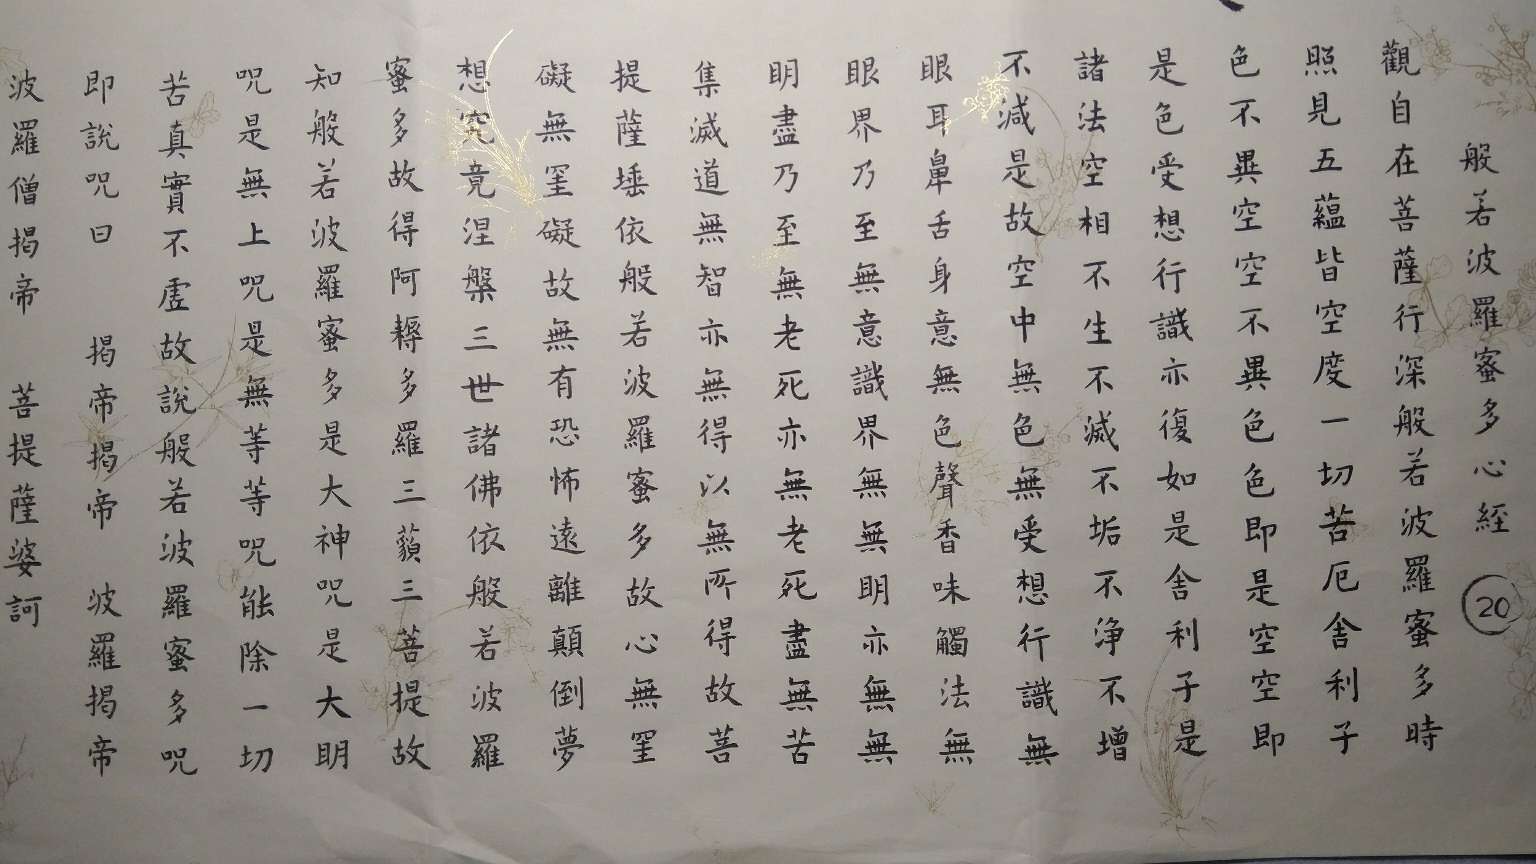 般若波羅蜜多心経
20
觀自在菩薩行深般若波羅蜜多時
照見五蘊皆空度一切苦厄舍利子
色不異空空不異色色即是空空即
是色受想行識亦復如是舍利子是
諸法空相不生不滅不垢不淨不增
不減是故空中無色無受想行識無
眼耳鼻舌身意無色聲香味觸法無
眼界乃至無意識界無無明亦無無
明盡乃至無老死亦無老死盡無苦
集滅道無智亦無得以無所得故菩
提薩埵依般若波羅蜜多故心無罣
礙無罣礙故無有恐怖遠離顛倒夢
想究竟涅槃三世諸佛依般若波羅
蜜多故得阿耨多羅三藐三菩提故
知般若波羅蜜多是大神咒是大明
咒是無上咒是無等等咒能除一切
苦真實不虛故說般若波羅蜜多咒
即說咒曰 揭帝揭帝 波羅揭帝
波羅僧揭帝 菩提薩婆訶